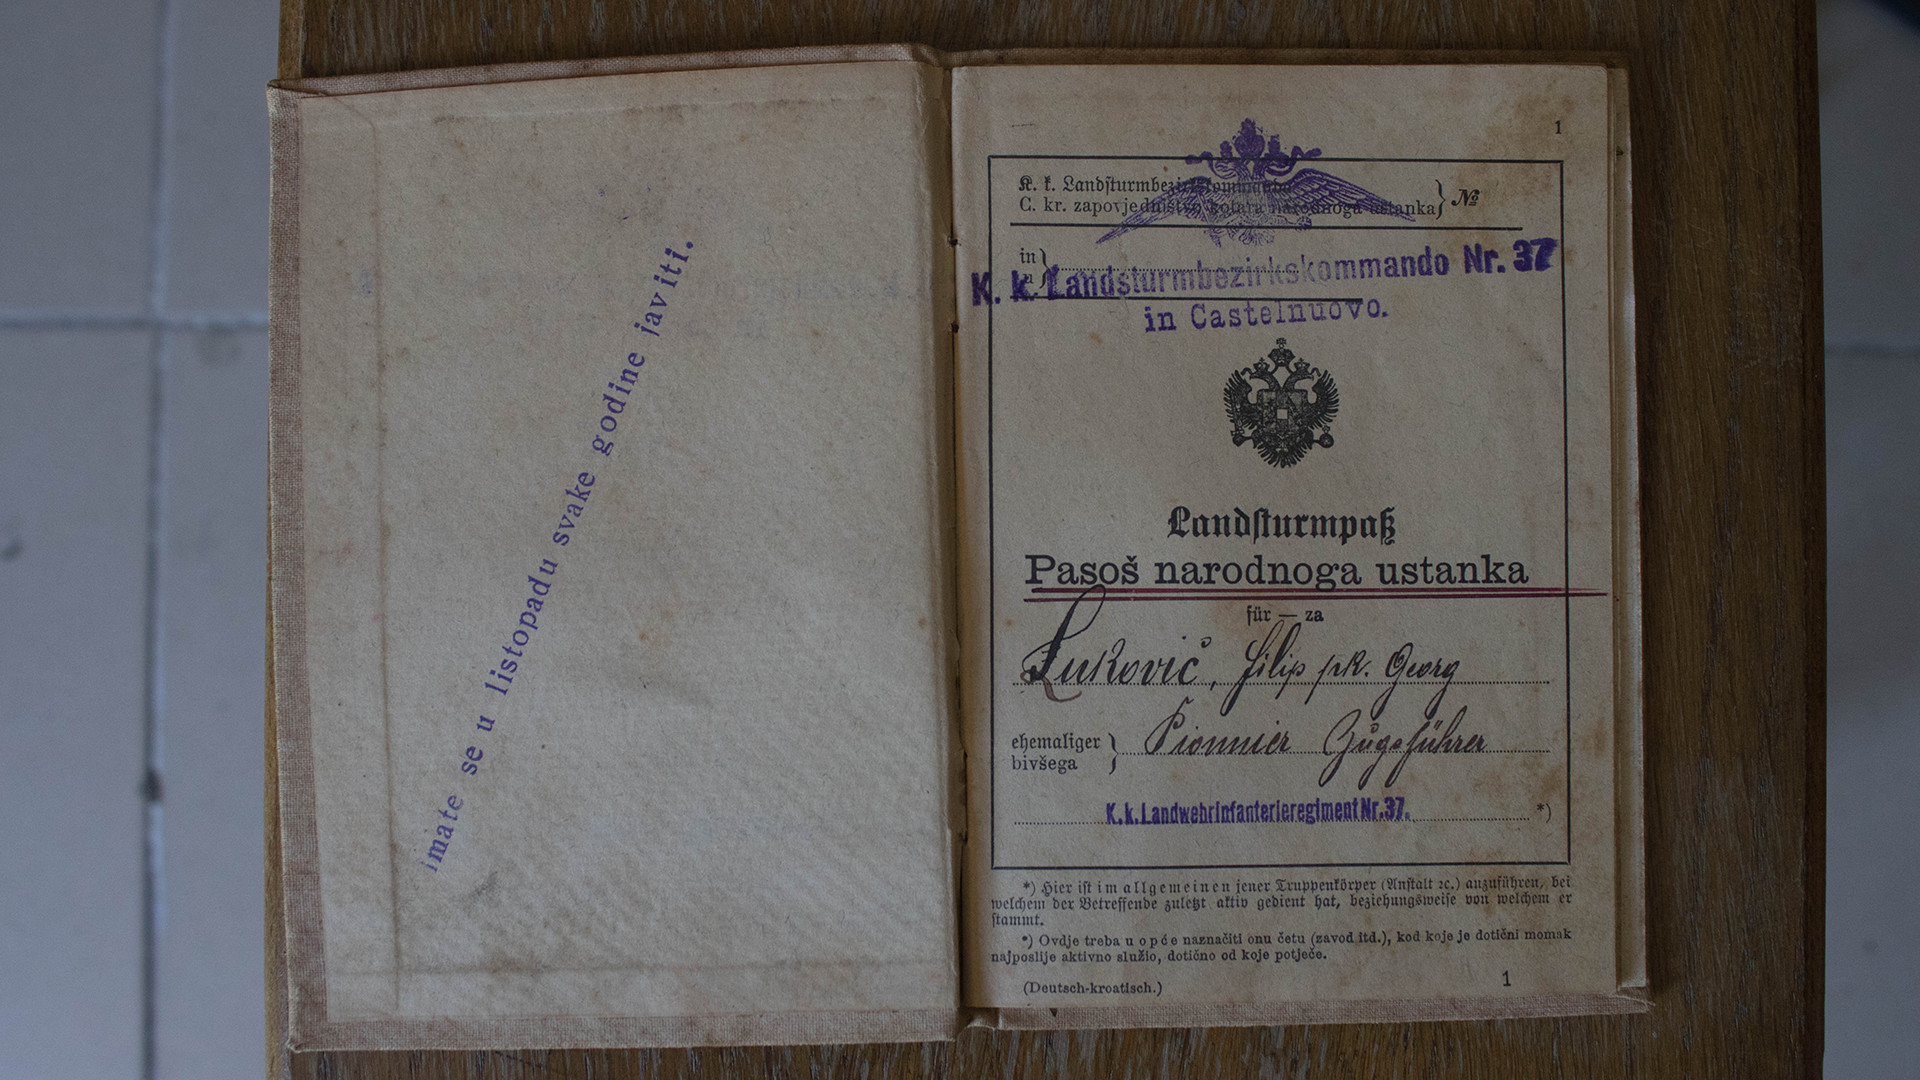 imate se u listopadu svake godine javiti.
1
K. k. Landsturmbezirkskommando
C. kr. zapovjedništvo kotara narodnoga ustanka
№
in
u
K. k. Landsturmbezirkskommando Nr. 37
in Castelnuovo.
Landſturmpaß
Pasoš narodnoga ustanka
für — za
Luković, Filip pk. Georg
ehemaliger
bivšega
Pionnier Zugsführer
K. k. Landwehrinfanterieregiment Nr. 37. *)
*) Hier iſt im allgemeinen jener Truppenkörper (Anſtalt ꝛc.) anzuführen, bei
welchem der Betreffende zuletzt aktiv gedient hat, beziehungsweiſe von welchem er
ſtammt.
*) Ovdje treba u opće naznačiti onu četu (zavod itd.), kod koje je dotični momak
najposlije aktivno služio, dotično od koje potječe.
(Deutsch-kroatisch.)
1